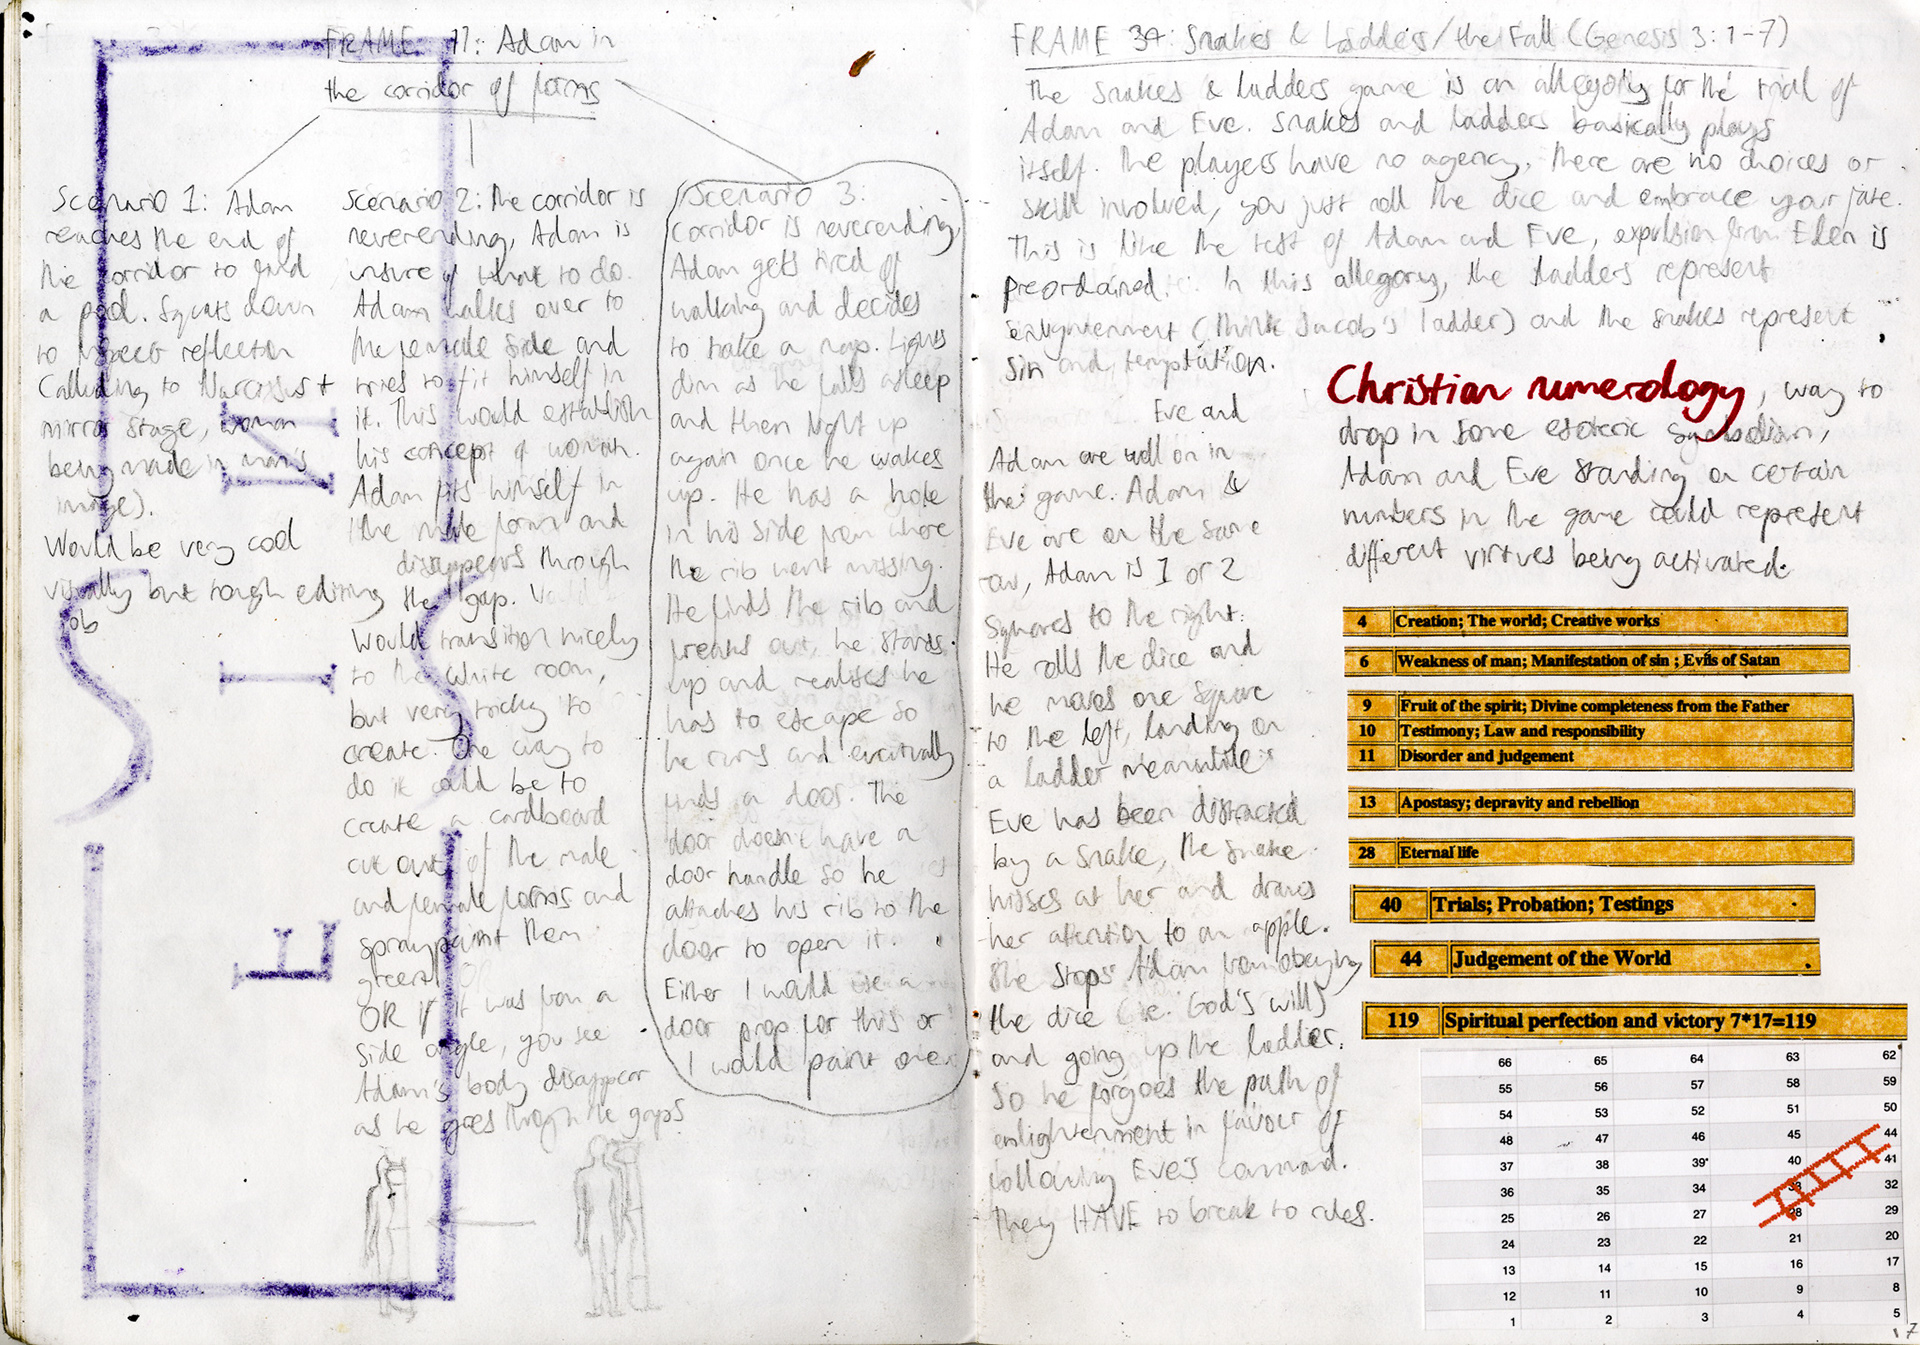 FRAME 11: Adam in
the corridor of forms
Scenario 1: Adam
reaches the end of
the corridor to find
a pool. Squats down
to inspect reflection
(alluding to Narcissus +
mirror stage, woman
being made in man's
image).
Would be very cool
visually but tough editing
job
Scenario 2: The corridor is
neverending, Adam is
unsure of what to do.
Adam walks over to
the female side and
tries to fit himself in
it. This would establish
his concept of woman.
Adam fits himself in
the male form and
disappears through
the gap.
Would transition nicely
to the white room,
but very tricky to
create. One way to
do it could be to
create a cardboard
cut out of the male
and female forms and
spraypaint them
green
OR if it was from a
side angle, you see
Adam's body disappear
as he goes through the gaps
Scenario 3:
corridor is neverending,
Adam gets tired of
walking and decides
to take a nap. Lights
dim as he falls asleep
and then light up
again once he wakes
up. He has a hole
in his side from where
the rib went missing.
He finds the rib and
freaks out, he stands
up and realises he
has to escape so
he runs and eventually
finds a door. The
door doesn't have a
door handle so he
attaches his rib to the
door to open it.
Either I would use a
door prop for this or
I would paint one.
FRAME 34: Snakes & Ladders/the Fall (Genesis 3:1-7)
The snakes & ladders game is an allegory for the trial of
Adam and Eve. Snakes and ladders basically plays
itself. The players have no agency, there are no choices or
skill involved, you just roll the dice and embrace your fate.
This is like the test of Adam and Eve, expulsion from Eden is
preordained. In this allegory, the ladders represent
enlightenment (think Jacob's ladder) and the snakes represent
sin and temptation.
Eve and
Adam are well on in
the game. Adam &
Eve are on the same
row, Adam is 1 or 2
squares to the right.
He rolls the dice and
he moves one square
to the left, landing on
a ladder meanwhile
Eve has been distracted
by a snake, the snake
hisses at her and draws
her attention to an apple.
She stops Adam from obeying
the dice (ie. God's will)
and going up the ladder.
So he forgoes the path of
enlightenment in favour of
following Eve's command.
They HAVE to break to rules.
Christian numerology, way to
drop in some esoteric symbolism,
Adam and Eve standing on certain
numbers in the game could represent
different virtues being activated.
4 Creation; The world; Creative works
6 Weakness of man; Manifestation of sin ; Evils of Satan
9 Fruit of the spirit; Divine completeness from the Father
10 Testimony; Law and responsibility
11 Disorder and judgement
13 Apostasy; depravity and rebellion
28 Eternal life
40 Trials; Probation; Testings
44 Judgement of the World
119 Spiritual perfection and victory 7*17=119
66 65 64 63 62
55 56 57 58 59
54 53 52 51 50
48 47 46 45 44
37 38 39 40 41
36 35 34 33 32
25 26 27 28 29
24 23 22 21 20
13 14 15 16 17
12 11 10 9 8
1 2 3 4 5